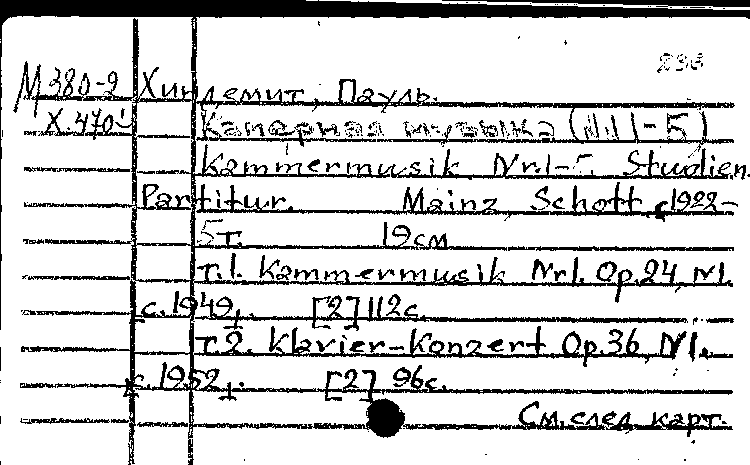 236
М380-2 Хиндемит, Пауль.
Х.470 Камерная музыка (№1-5)
Kammermusik Nr.1-5. Studien.
Partitur. Mainz, Schott, c1922-
5т. 19см
т.1. Kammermusik Nr1. Op.24, N1.
[c.1949]. [2] 112с.
т.2. Klavier-Konzert Op.36, N1.
[c.1952]. [2] 96с.
См. след. карт.